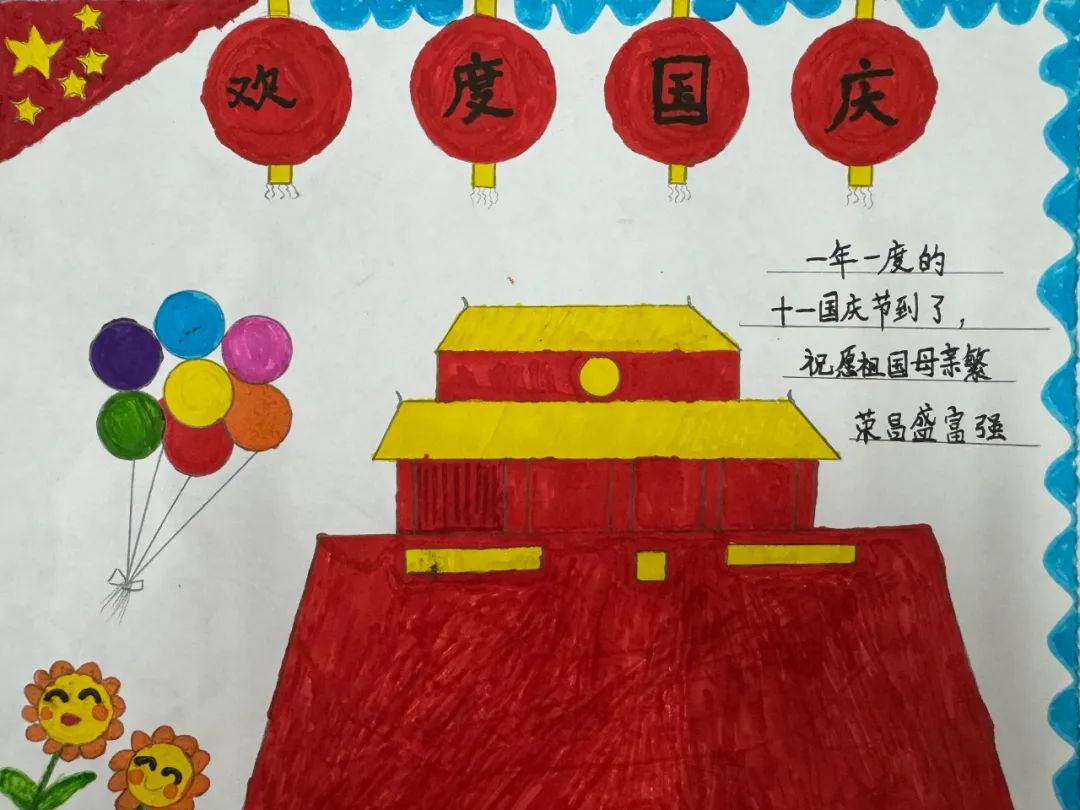 欢度国庆
一年一度的
十一国庆节到了,
祝愿祖国母亲繁
荣昌盛富强